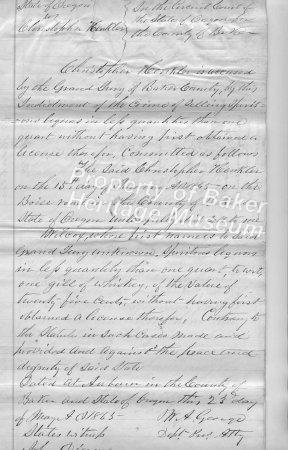 State of Oregon
vs
Christopher Henkler
In the Circuit Court of
the State of Oregon for
the County of Baker
Christopher Henkler is accused
by the Grand Jury of Baker County, by this
Indictment of the Crime of Selling Spirit-
ous liquors in less quantities than one
quart without having first obtained a
license therefor, Committed as follows
The Said Christopher Henkler
on the 15th day of A.D. 1865 on the
Boise road in the County of
State of Oregon
Wilcox, whose first name is to Said
Grand Jury unknown, Spiritous liquors
in less quantity than one quart, to wit,
one gill of whiskey, of the value of
twenty five cents, without having first
obtained a license therefor, Contrary to
the Statutes in Such Cases made and
provided and against the peace and
dignity of Said State
Dated at Auburn in the County of
Baker and State of Oregon this 23d day
of May A.D. 1865
W. A. George
States witness
Dept Pros Atty
Property of Baker
Heritage Museum